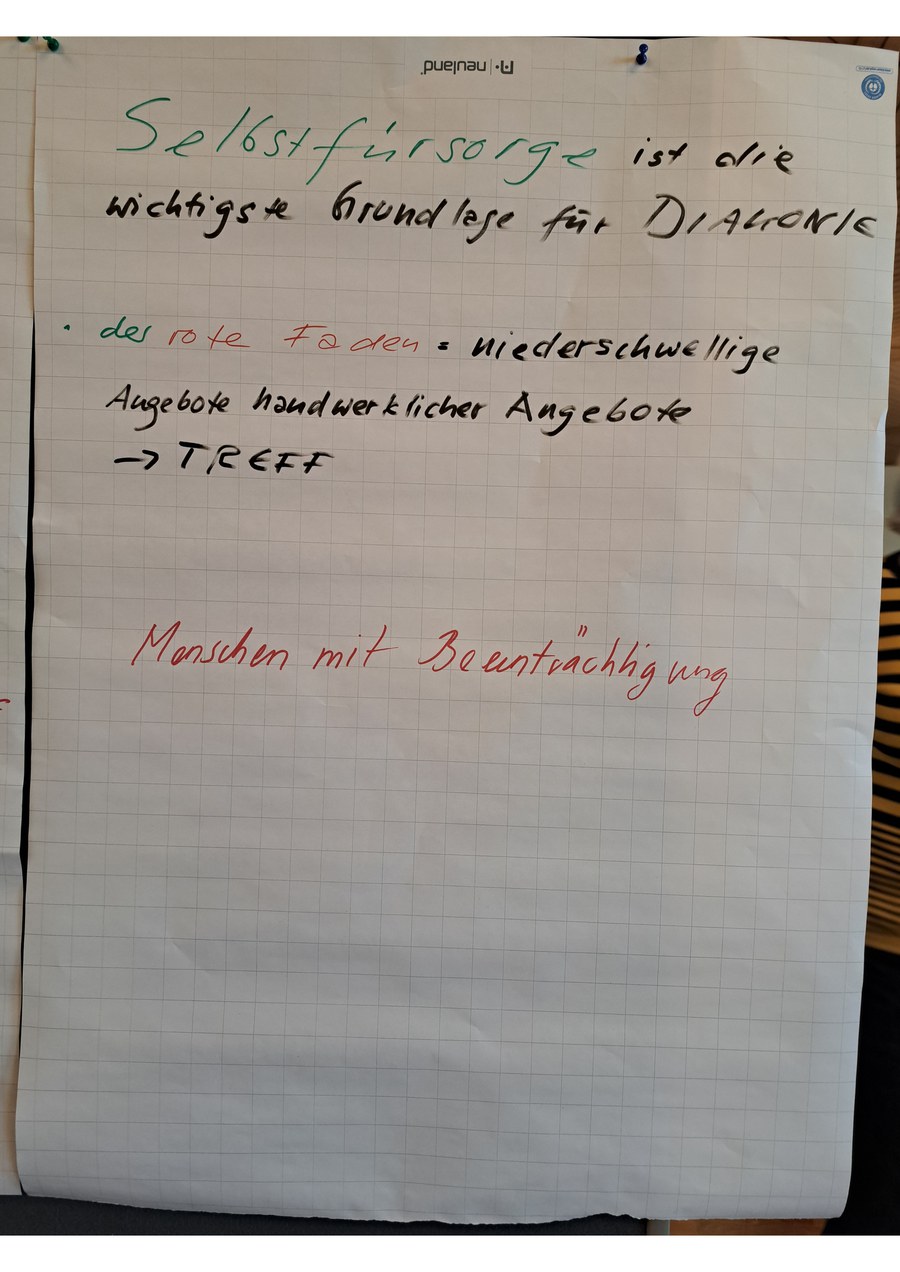 neuland
Selbstfürsorge ist die
wichtigste Grundlage für DIAKONIE
· der rote Faden = niederschwellige
Angebote handwerklicher Angebote
→ TREFF
Menschen mit Beeinträchtigung